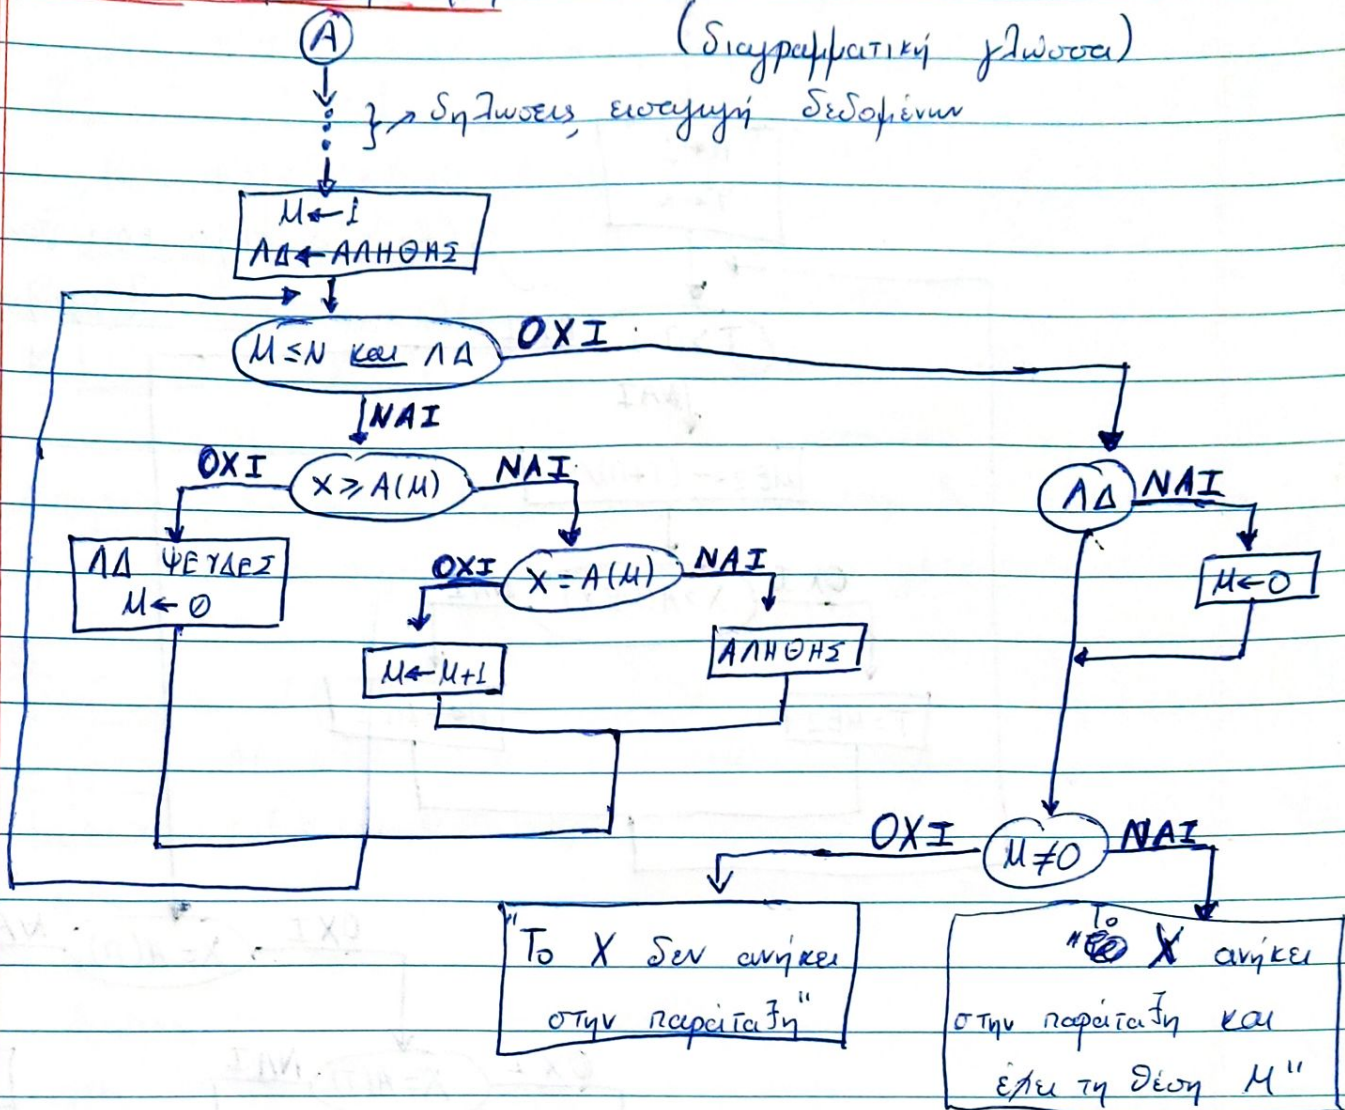 Α (διαγραμματική γλώσσα)
} → δηλώσεις, εισαγωγή δεδομένων
Μ ← 1
ΛΔ ← ΑΛΗΘΗΣ
Μ ≤ Ν και ΛΔ ΟΧΙ
ΝΑΙ
ΟΧΙ Χ ≥ Α(Μ) ΝΑΙ
ΛΔ ΝΑΙ
ΛΔ ΨΕΥΔΕΣ
Μ ← 0
ΟΧΙ Χ = Α(Μ) ΝΑΙ
Μ ← 0
Μ ← Μ+1
ΑΛΗΘΗΣ
ΟΧΙ Μ ≠ 0 ΝΑΙ
"Το Χ δεν ανήκει
στην παράταξη"
"Το Χ ανήκει
στην παράταξη και
έχει τη θέση Μ"